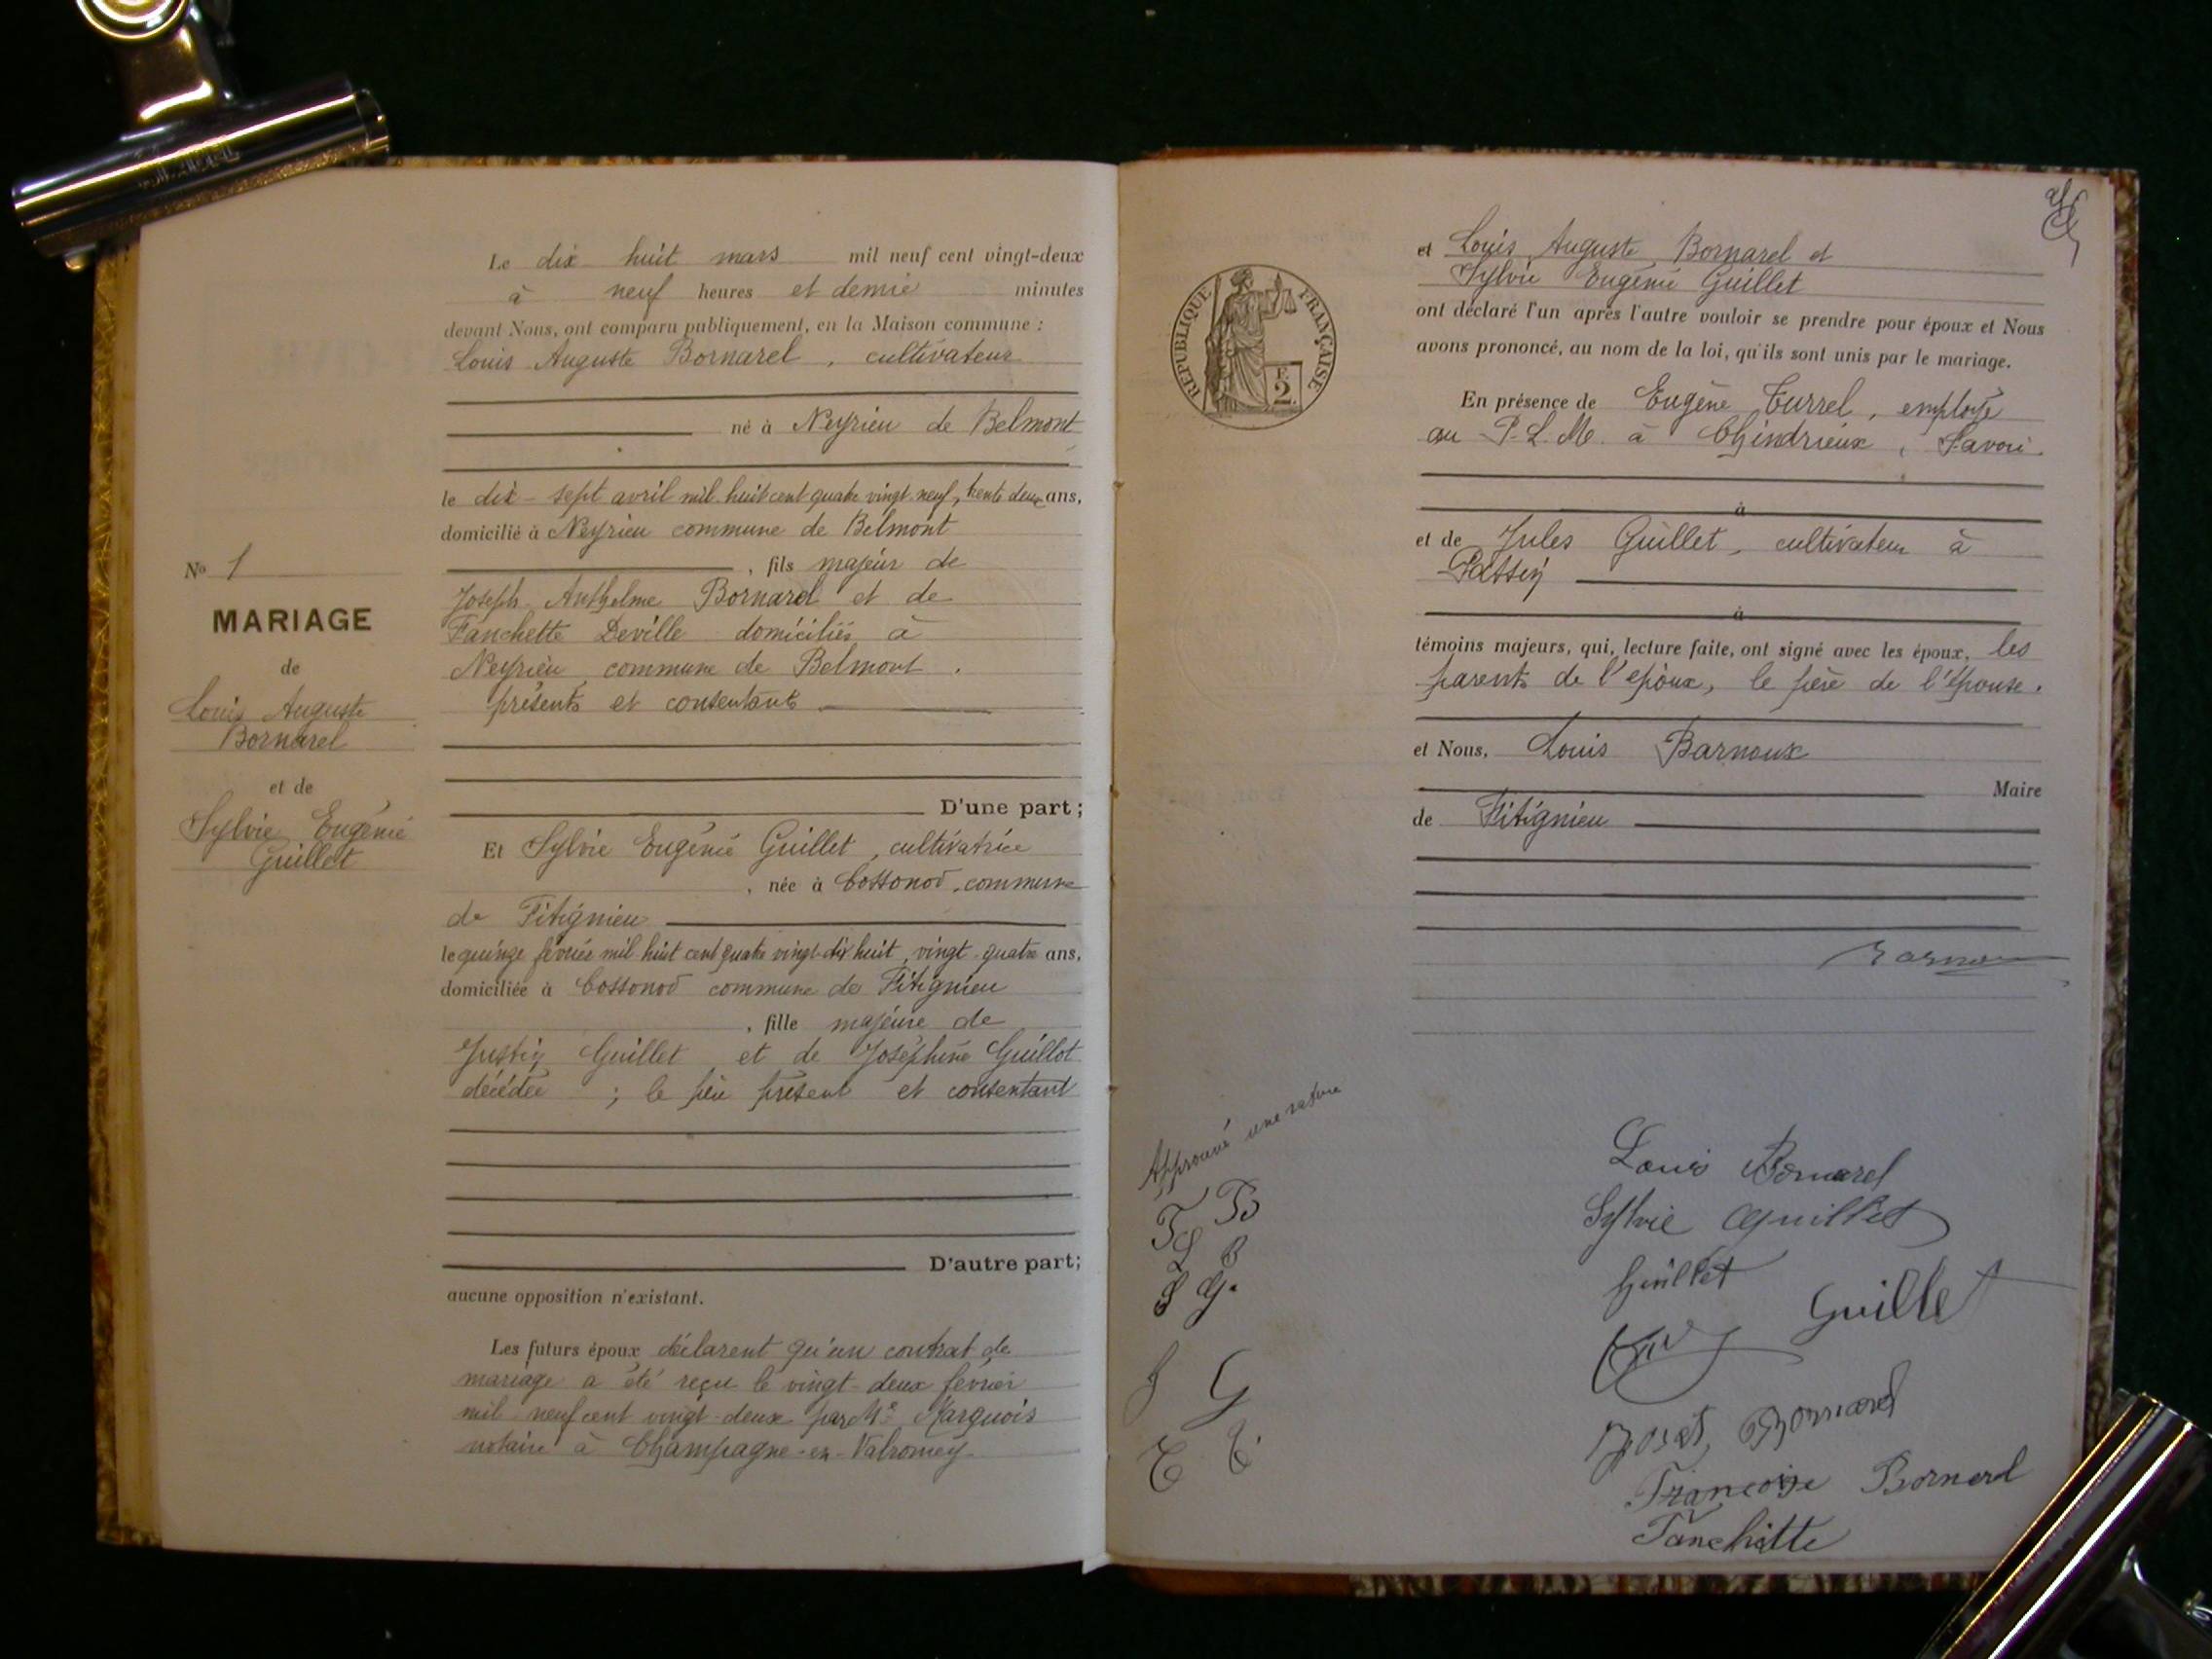 Le dix-huit mars mil neuf cent vingt-deux
à neuf heures et demie minutes
devant Nous, ont comparu publiquement, en la Maison commune :
Louis Auguste Bornarel, cultivateur
né à Neyrieu de Belmont
le dix-sept avril mil huit cent quatre vingt neuf, trente deux ans,
domicilié à Neyrieu commune de Belmont
, fils majeur de
Joseph Anthelme Bornarel et de
Fanchette Deville domiciliés à
Neyrieu commune de Belmont.
présents et consentants
D'une part;
Et Sylvie Eugénie Guillet, cultivatrice
, née à Cossonod, commune
de Fitignieu
le quinze février mil huit cent quatre vingt-dix huit, vingt-quatre ans,
domiciliée à Cossonod commune de Fitignieu
, fille majeure de
Justin Guillet et de Joséphine Guillot
décédée ; le père présent et consentant
D'autre part;
aucune opposition n'existant.
Les futurs époux déclarent qu'un contrat de
mariage a été reçu le vingt-deux février
mil neuf cent vingt-deux par Me Marquois
notaire à Champagne-en-Valromey
No 1
MARIAGE
de
Louis Auguste
Bornarel
et de
Sylvie Eugénie
Guillet
RÉPUBLIQUE FRANÇAISE
F.
2
et Louis Auguste Bornarel et
Sylvie Eugénie Guillet
ont déclaré l'un après l'autre vouloir se prendre pour époux et Nous
avons prononcé, au nom de la loi, qu'ils sont unis par le mariage.
En présence de Eugène Turrel, employé
au P.L.M. à Chindrieux, Savoie.
à
et de Jules Guillet, cultivateur à
Passin
à
témoins majeurs, qui, lecture faite, ont signé avec les époux, les
parents de l'époux, le père de l'épouse.
et Nous, Louis Barnoux
Maire
de Fitignieu
Approuvé une rature
F B
L B
S G.
J G
E T
Louis Bornarel
Sylvie Guillet
Guillet
Guillet
Bornarel
Françoise Bornarel
Fanchette